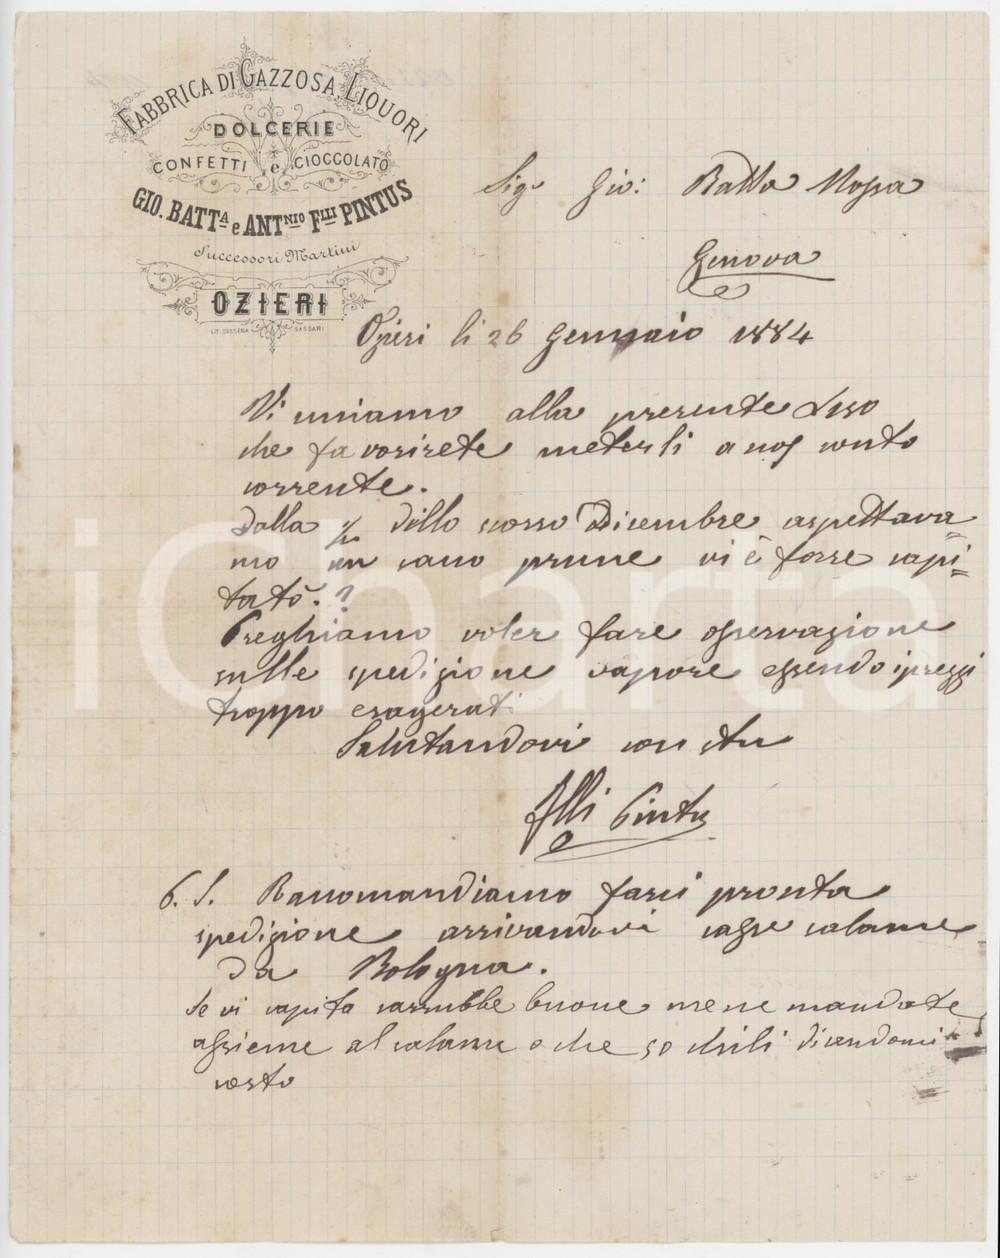 FABBRICA DI GAZZOSA, LIQUORI
DOLCERIE
CONFETTI e CIOCCOLATO
GIO. BATTA e ANTNIO FLLI PINTUS
Successori Martini
OZIERI
LIT. DESSENA SASSARI
Sigr Gio: Batta Mossa
Genova
Ozieri li 26 Gennaio 1884
Vi uniamo alla presente
che favorirete meterli a nos conto
corrente.
Dalla dillo scorso Dicembre aspettava=
mo un cano prune vi è forse capi=
tato. ?
Preghiamo voler fare osservazione
sulle spedizione vapore essendo i prezzi
troppo esagerati
Salutandovi con stu
Flli Pintus
P. S. Racomandiamo farci pronta
spedizione arrivandovi casse salame
da Bologna.
Se vi capita carrubbe buone mene mandate
assieme al salame o che 50 chili dicendomi
costo
iCharta